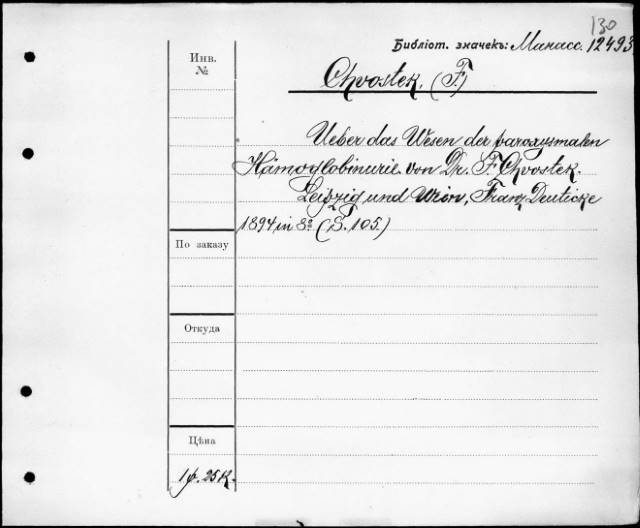 130
Библіот. значекъ: Манасс. 12493
Инв. №
Chvostek, (F.)
Ueber das Wesen der paroxysmalen
Hämoglobinurie von Dr. F. Chvostek.
Leipzig und Wien, Franz Deuticke
1894 in 8º (S. 105.)
По заказу
Откуда
Цѣна
1 р. 25 К.